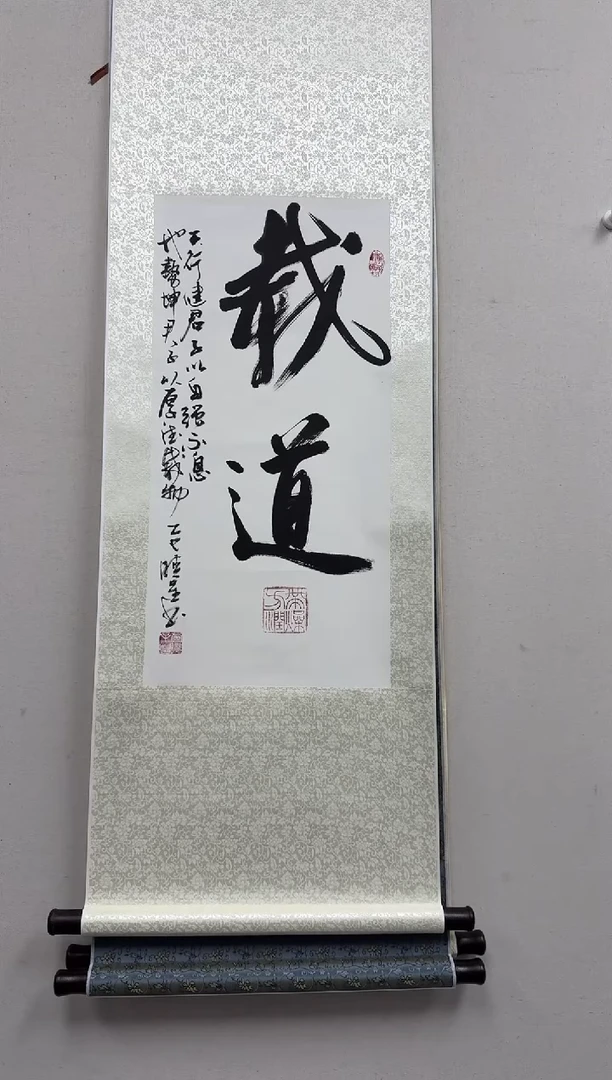 載道
天行健君子以自强不息
地勢坤君子以厚德載物 乙巳 书